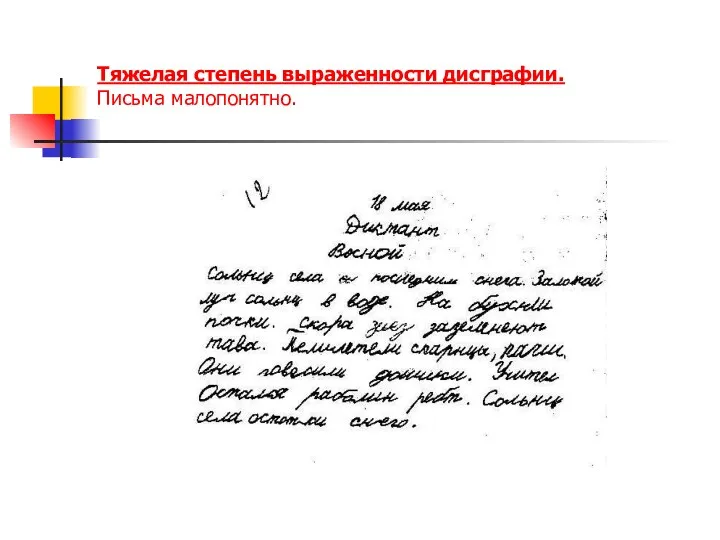 Тяжелая степень выраженности дисграфии.
Письма малопонятно.
12
18 мая
Диктант
Восной
Сольниц села последним снега. Залокой
луч сольнц в воде. На бухнли
почки. Скора зазеленеют
тава. скарнцы, рачи.
Они говгоили домики. Учител
Осталя ребт. Сольниц
села остотки снчего.